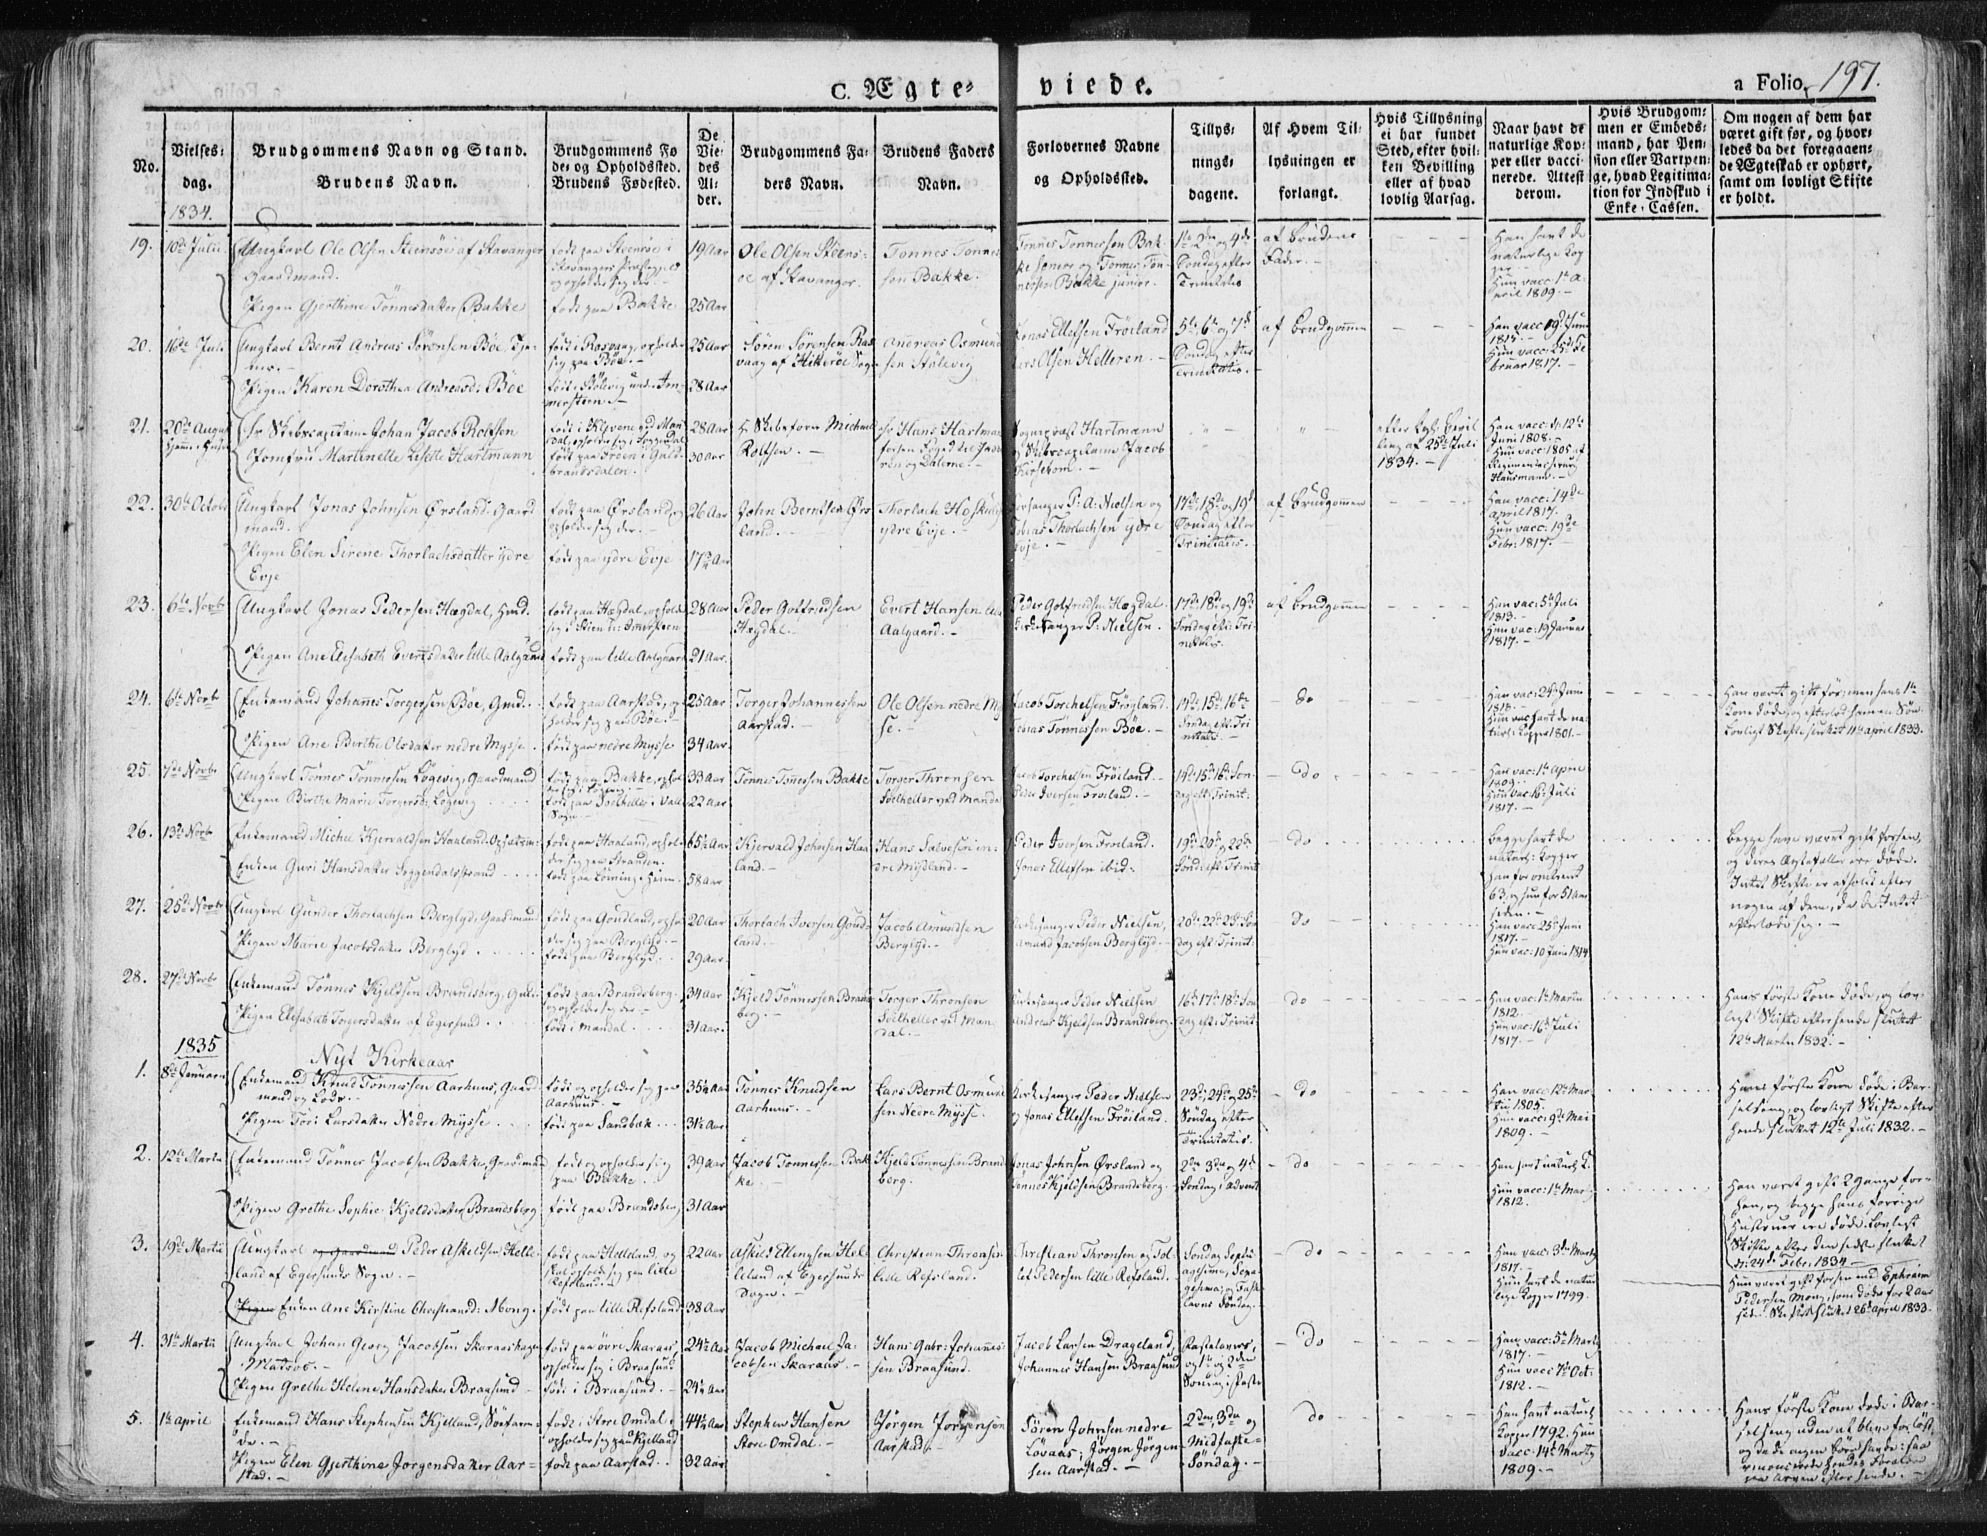 C. Ægte-
viede.
a Folio 197.
No.
Vielses-
dag.
1834.
Brudgommens Navn og Stand.
Brudens Navn.
Brudgommens Fø
de- og Opholdssted.
Brudens Fødested.
De
Vie-
des
Al-
der.
Brudgommens Fa-
ders Navn.
Brudens Faders
Navn.
Forlovernes Navne
og Opholdssted.
Tillys-
nings-
dagene.
Af Hvem Til-
lysningen er
forlangt.
Hvis Tillysning
ei har fundet
Sted, efter hvil-
ken Bevilling
eller af hvad
lovlig Aarsag.
Naar havt de
naturlige Kop-
per eller vacci-
nerede. Attest
derom.
Hvis Brudgom-
men er Embeds-
mand, har Pen-
sion eller Vartpen-
ge, hvad Legitima-
tion for Indskud i
Enke-Cassen.
Om nogen af dem har
været gift før, og hvor-
ledes da det foregaaen-
de Ægteskab er ophørt,
samt om lovligt Skifte
er holdt.
19.
10de Julii
Ungkarl Ole Olsen Steensöe af Stavanger
Gaardmand.
Pigen Gjerthine Tönnesdatter Bakke
født paa Bakke
19 Aar
25 Aar
Ole Olsen Steens-
öe af Stavanger.
Tonnes Tonnes-
sen Bakke.
Tonnes Tonnessen Bak-
ke senior og Tonnes Ton-
nessen Bakke junior.
1ste 2den og 4de
Söndag efter
Trinitatis
af Brudens
Fader.
Han havt de
naturlige Kop
per
Hun vacc. 1te A-
pril 1809.
20.
16de Juli
Ungkarl Bernt Andreas Sörensen Böe, Tje-
ner.
Pigen Karen Dorothea Andreasd: Böe
født i Rosvaag, opholder
sig paa Böe.
25 Aar
28 Aar
Sören Sörensen Ras
vaag af Hitteröe Sogn
Andreas Osmund
sen Stölevig
Jonas Ellefsen Fröiland
Lars Olsen Helleren.
5te 6te og 7de
Söndag efter
Trinitatis.
af Brudgommen
Han vacc 19de Juni
1815.
Hun vacc: 25de Fe
bruar 1817.
21.
20de August
Hr Skibscapitaine Johan Jacob Rolfsen
Jomfru Martinette Lisette Hartmann
28 Aar
30 Aar
Rolfsen.
Hr Hans Hartman
Sognepræst Hartmann
og Skibscapitaine Jacob
Kirsebom.
efter Kgl: Bevil
ling af 25de Juli
1834.
Han vacc: d: 12te
Juni 1808.
Hun vacc: 1805 af
Hausmann.
22.
30te Octobr
Ungkarl Jonas Johnsen Örsland, Gaard
mand.
Pigen Elen Sirene Thorlachsdatter ydre
Evje
født paa Örsland, og
opholder sig der.
født paa ydre Evje
26 Aar
John Berntsen Örs
land.
Thorlach Hoskuld
ydre Evje.
Kirkesanger P: A: Nielsen og
Tobias Thorlachsen ydre
Evje.
17de, 18de og 19de
Söndag efter
Trinitatis.
af Brudgommen
Han vacc: 14de
April 1817.
Hun vacc: 19de
Febr: 1817.
23.
6te Novbr
Ungkarl Jonas Pedersen Hægdal, Gmd.
Pigen Ane Elisabeth Evertsdatter lille Aalgaard
født paa lille Aalgaard
28 Aar
21 Aar.
Peder Gotfredsen
Hægdal.
Evert Hansen lille
Aalgaard.
Peder Gotfredsen Hægdal.
Kirkesanger P: Nielsen.
17de 18de og 19de
Söndag eft: Tri-
nitatis.
af Brudgommen
Han vac: 5te Juli
1813.
Hun vac: 19 Januar
1817.
24.
6te Novbr
Enkemand Johannes Torgersen Böe, Gmd.
Pigen Ane Berthe Olsdatter nedre Mysse.
født paa Aarstad, op-
holder sig paa Böe.
født paa nedre Mysse
25 Aar
34 Aar.
Torger Johannessen
Aarstad.
Ole Olsen nedre My
se.
Jacob Torchelsen Fröyland.
Tobias Tönnessen Böe.
14de 15de 16de
Söndag eft. Tri
nitatis.
do
Han vac: 24de Juni
1818.
Hun har havt de na-
turl: Kopper 1801.
Han været gift för, men hans 1te
Kone döde, og efterlod ham en Sön.
Lovligt Skifte sluttet 11te April 1833.
25.
7de Novbr
Ungkarl Tönnes Tönnesen Lögevig, Gaardmand
Pigen Birthe Marie Torgersd: Lögevig
33 Aar
22 Aar
Tönnes Tönnesen Bakke
Torger Thronsen
Solhelles ved Mandal
Jacob Torchelsen Fröiland.
Peder Iversen Fröiland.
14de 15de 16de Sön-
dag eft: Trinit:
do
Han vac: 1te April
1809.
Hun vac 16de Juli
1817.
26.
13de Novbr
Enkemand Michel Kjervaldsen Haaland. Opholdsm:
Enken Guri Hansdatter Soggendalsstrand
født paa Haaland, ophol-
der sig paa Stranden.
65½ Aar
58 Aar
Kjervald Johnsen Haa
land.
Hans Salvesen in-
dre Mydland.
Peder Iversen Fröiland.
Jonas Ellefsen ibid:
19de 20de 22de
Sönd: eft Trinit
do
Begge havt de
naturl: Kopper
Han for omtrent
63, og hun for 51 Aar
siden.
Begge have været gift forhen,
og deres Ægtefæller ere döde.
Intet Skifte er afholdt efter
nogen af dem, da de Intet
efterlode sig.
27.
25de Novbr
Ungkarl Gunder Thorlachsen Berglyd, Gaardmand
Pigen Marie Jacobsdatter Berglyd
født paa Goudland, ophol
der sig paa Berglyd.
født paa Berglyd.
20 Aar
29 Aar
Thorlach Iversen Goud-
land.
Jacob Amundsen
Berglyd.
Kirkesanger Peder Nielsen,
Amund Jacobsen Berglyd.
20de 22de 23de Sön
dag eft. Trinit:
do
Han vacc 25de Juni
1817.
Hun vac: 10 Juni 1814
28.
27de Novbr
Enkemand Tönnes Kjeldsen Brandsberg. Gmd.
Pigen Elisabeth Torgersdatter af Egersund
født paa Brandsberg
og opholder sig der.
født i Mandal
34 Aar
31 Aar.
Kjeld Tönnessen Brands
berg.
Torger Thronsen
Solhelles ved Man-
dal.
Kirkesanger Peder Nielsen
Andreas Kjeldsen Brandsberg.
16de 17de 18de Sön
dag eft: Trinit:
do
Han vac: 1te Martii
1812.
Hun vac: 16de Juli
1817.
Hans første Kone döde, og lov-
ligt Skifte efter hende sluttet
12te Martii 1832.
1835
Nyt Kirkeaar
1.
8de Januarii
Enkemand Knud Tönnessen Aarhuus, Gaard
mand og Lods.
Pigen Tori Larsdatter Nedre Mysse.
født og opholder sig paa
Aarhuus.
født paa Sandbæk
35½ Aar
31½ Aar
Tönnes Knudsen
Aarhuus.
Lars Bernt Osmund
sen Nedre Mysse.
Kirkesanger Peder Nielsen
og Jonas Ellefsen Fröiland.
23de, 24de og 25de
Söndag efter
Trinitatis.
do
Han vacc: 12te Mar
tii 1805.
Hun vacc: 9de Mai
1809.
Hans første Kone döde i Bar-
selseng, og lovligt Skifte efter
hende sluttet 12te Juli 1832.
2.
12te Martii
Enkemand Tönnes Jacobsen Bakke, Gaardmand
Pigen Grethe Sophie Kjeldsdatter Brandsberg
født og opholder sig
paa Bakke.
født paa Brandsberg
39 Aar
31 Aar
Jacob Tönnessen Bak
ke.
Kjeld Tönnessen Brands
berg.
Jonas Johnsen Örsland og
Tönnes Kjeldsen Brandsberg.
2den 3die og 4de
Söndag i Advent
do
Han havt naturl: K.
Hun vacc: 1te Martii
1812.
Han været gift 2 Gange for-
hen, og begge hans forrige
Hustruer ere döde. Lovligt
Skifte efter den sidste sluttet
d: 24de Febr. 1834
3.
19de Martii
Ungkarl og Gaardmand Peder Askildsen Helle-
land af Egersunds Sogn.
Pigen Enken Ane Kirstine Christiansd: Mong.
født paa Helleland, og
skal opholde sig paa lille
Refsland.
født paa lille Refsland
22 Aar
38 Aar
Askild Ellingsen Hel-
leland af Egersunds
Sogn.
Christian Thronsen
lille Refsland.
Christian Thronsen og Tol-
lef Pedersen lille Refsland.
Söndag Septu
agesima, Sexa
gesima, og Fast
lavns Söndag.
do
Han vacc: 3de Martii
1817.
Hun havt de natur
lige Kopper 1799.
Hun været gift forhen med Ephraim
Pedersen Mong, som döde for 2 Aar
sid. Skiftet sluttet 26de April 1833.
4.
31te Martii
Ungkarl Johan Georg Jacobsen Skaraas
Matros.
Pigen Grethe Helene Hansdatter Braasund
født paa övre Skaraas,
opholder sig i Braasund
født i Braasund.
24½ Aar
24½ Aar
Jacob Michael Ja-
cobsen Skaraas.
Hans Gabr: Johannes-
sen Braasund.
Jacob Larsen Drageland,
Johannes Hansen Braasund
Fastelavns,
og 1te og 2den
Söndag i Faste
do
Han vacc: 5te Martii
1817.
Hun vacc 7de Oct:
1812.
5.
1te April
Enkemand Hans Stephensen Kjelland, Söefaren-
de.
Pigen Elen Gjerthine Jörgensdatter Aar-
stad.
født i Store Omdal,
opholder sig paa Kjelland
født paa Aarstad.
44½ Aar
32 Aar
Stephen Hansen
Store Omdal.
Jörgen Jörgensen
Aarstad.
Sören Johnsen nedre
Lövaas, Jörgen Jörgen-
sen Aarstad.
2den, 3die og
Midfaste-
Söndag.
do
Han havt naturl:
Kopper 1792. Hun
vacc: 14de Martii
1809.
Hans første Kone döde i Bar-
selseng uden at blive forlöst,